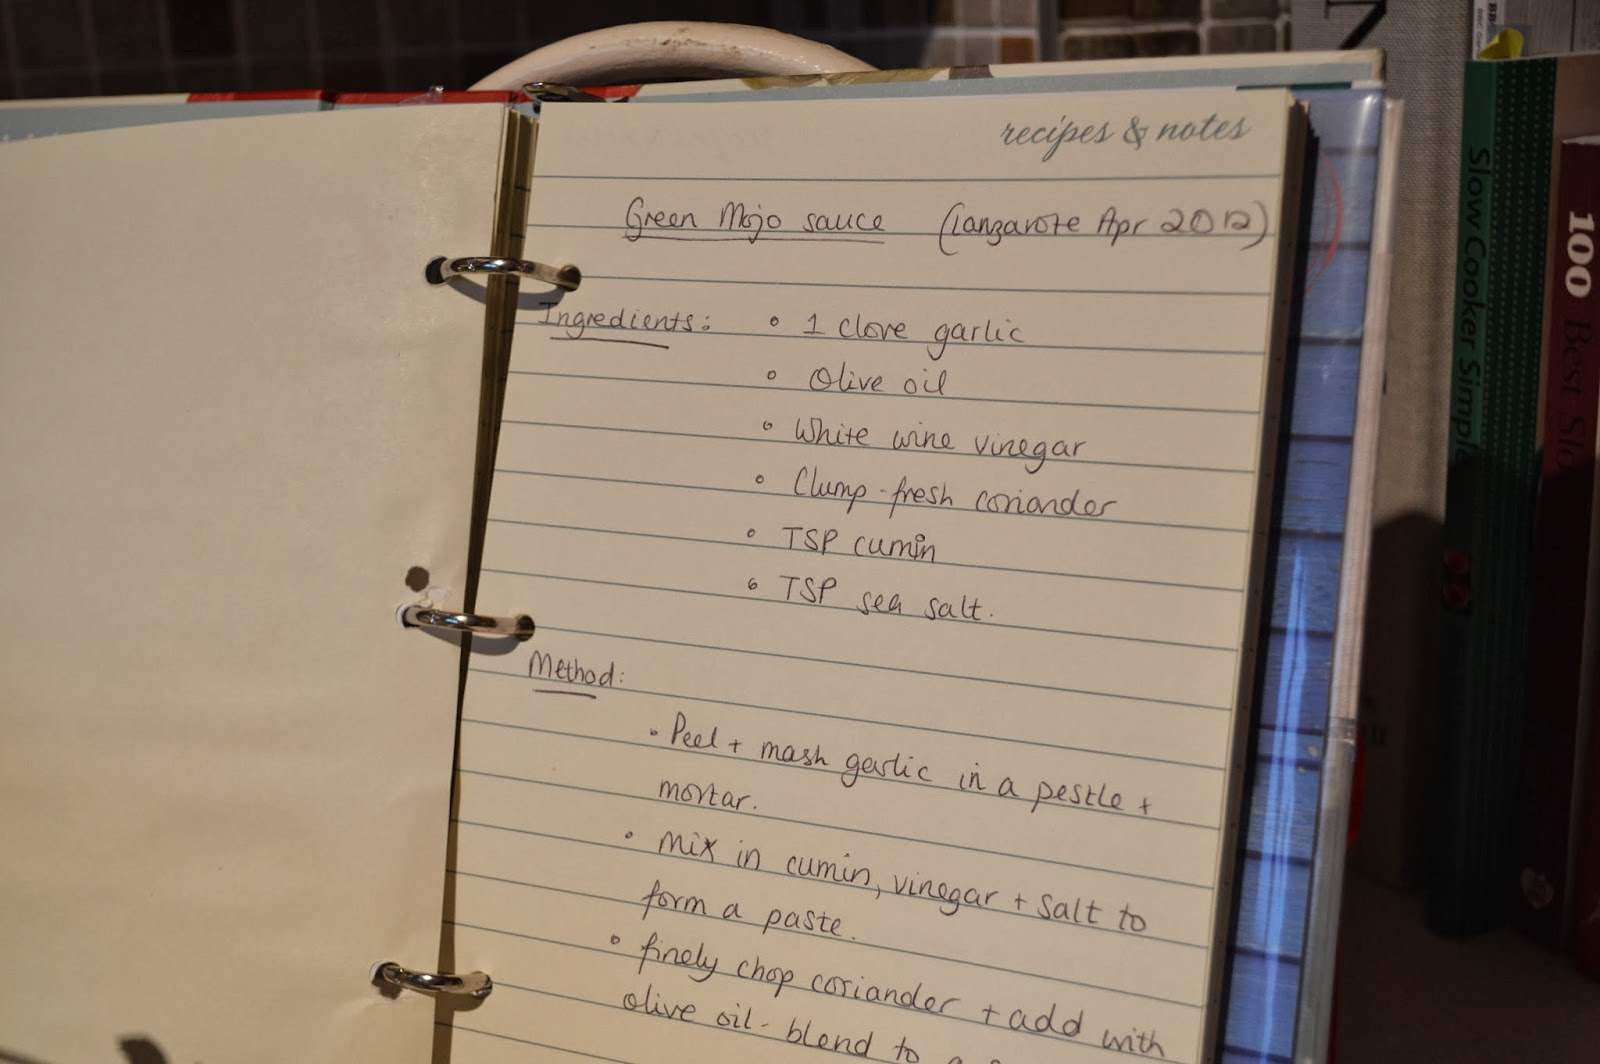 recipes & notes
Green Mojo sauce (Lanzarote Apr 2012)
Ingredients: • 1 clove garlic
• Olive oil
• White wine vinegar
• Clump - fresh coriander
• TSP cumin
• TSP sea salt.
Method:
• Peel + mash garlic in a pestle +
mortar.
• mix in cumin, vinegar + salt to
form a paste.
• finely chop coriander + add with
olive oil - blend to a
Slow Cooker Simple
100 Best Slo